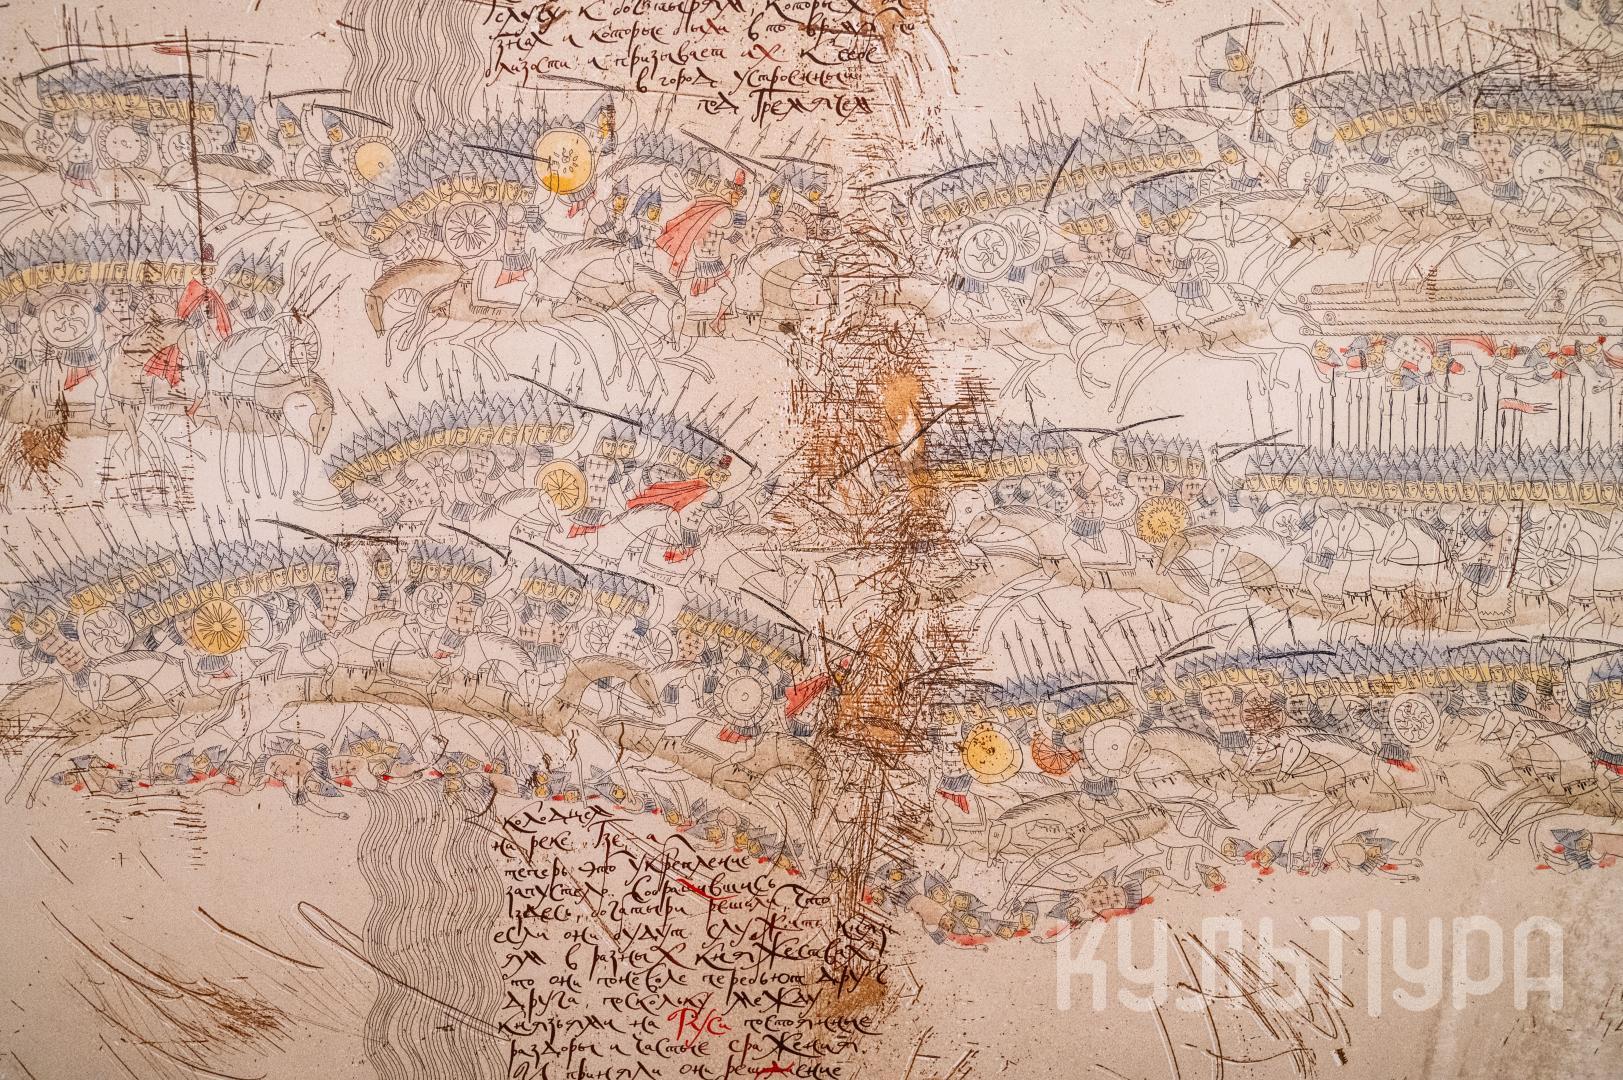 слугу к богатырям, которых он
знал и которые были в то время по
близости и призывает их к себе
в город устроенный
под Гремячем
колодцем
на реке Гзе, а
теперь это укрепление
запустело. Собравшись
здесь, богатыри решали, что
если они будут служить князь
ям в разных княжествах
то они поневоле перебьют друг
друга, поскольку между
князьями на Руси постоянные
раздоры и частые сражения.
И приняли они решение
КУЛЬТУРА